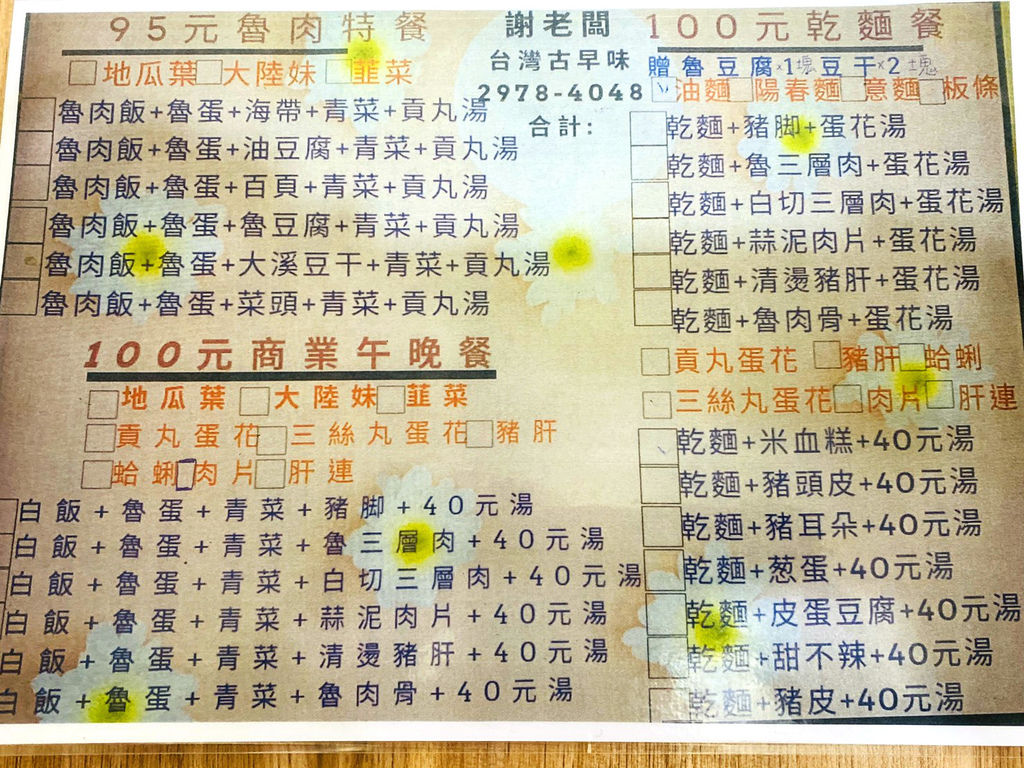 95元魯肉特餐
地瓜葉 大陸妹 韮菜
魯肉飯+魯蛋+海帶+青菜+貢丸湯
魯肉飯+魯蛋+油豆腐+青菜+貢丸湯
魯肉飯+魯蛋+百頁+青菜+貢丸湯
魯肉飯+魯蛋+魯豆腐+青菜+貢丸湯
魯肉飯+魯蛋+大溪豆干+青菜+貢丸湯
魯肉飯+魯蛋+菜頭+青菜+貢丸湯
100元商業午晚餐
地瓜葉 大陸妹 韮菜
貢丸蛋花 三絲丸蛋花 豬肝
蛤蜊 肉片 肝連
白飯+魯蛋+青菜+豬脚+40元湯
白飯+魯蛋+青菜+魯三層肉+40元湯
白飯+魯蛋+青菜+白切三層肉+40元湯
白飯+魯蛋+青菜+蒜泥肉片+40元湯
白飯+魯蛋+青菜+清燙豬肝+40元湯
白飯+魯蛋+青菜+魯肉骨+40元湯
謝老闆
台灣古早味
2978-4048
合計:
100元乾麵餐
贈魯豆腐×1塊豆干×2塊
油麵 陽春麵 意麵 板條
乾麵+豬脚+蛋花湯
乾麵+魯三層肉+蛋花湯
乾麵+白切三層肉+蛋花湯
乾麵+蒜泥肉片+蛋花湯
乾麵+清燙豬肝+蛋花湯
乾麵+魯肉骨+蛋花湯
貢丸蛋花 豬肝 蛤蜊
三絲丸蛋花 肉片 肝連
乾麵+米血糕+40元湯
乾麵+豬頭皮+40元湯
乾麵+豬耳朵+40元湯
乾麵+葱蛋+40元湯
乾麵+皮蛋豆腐+40元湯
乾麵+甜不辣+40元湯
乾麵+豬皮+40元湯